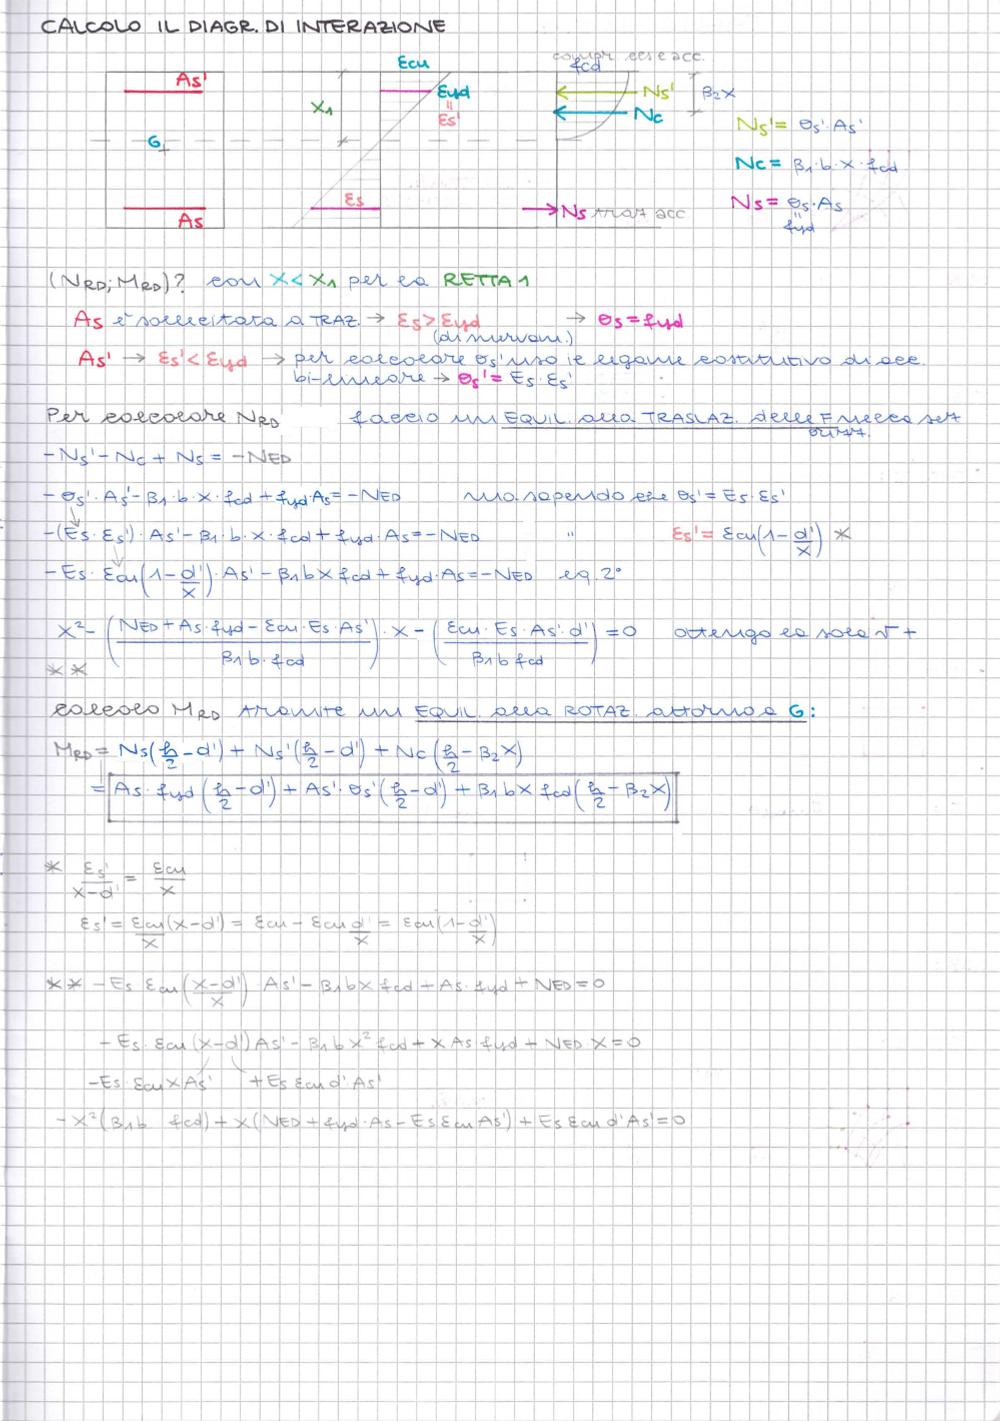 CALCOLO IL DIAGR. DI INTERAZIONE
As'
G
As
x₁
εcu
εyd
=
εs'
εs
compr. cls e acc.
fcd
Ns'
Nc
β₂x
Ns traz acc
Ns' = σs'·As'
Nc = β₁·b·x·fcd
Ns = σs·As
=
fyd
(NRD; MRD)? con x < x₁ per la RETTA 1
As è sollecitata a TRAZ. → εs > εyd → σs = fyd
(di snervam.)
As' → εs' < εyd → per calcolare σs' uso il legame costitutivo di acc
bi-lineare → σs' = Es·εs'
Per calcolare NRD faccio un EQUIL. alla TRASLAZ. delle F nella sez
orizz.
- Ns' - Nc + Ns = - NED
- σs'·As' - β₁·b·x·fcd + fyd·As = - NED ma sapendo che σs' = Es·εs'
- (Es·εs')·As' - β₁·b·x·fcd + fyd·As = - NED " εs' = εcu(1 - d'/x) *
- Es·εcu(1 - d'/x)·As' - β₁bx fcd + fyd·As = - NED eq. 2°
x² - ((NED + As·fyd - εcu·Es·As')/(β₁b·fcd))·x - ((εcu·Es·As'·d')/(β₁b fcd)) = 0 ottengo la sola √ +
**
calcolo MRD tramite un EQUIL. alla ROTAZ. attorno a G:
MRD = Ns(h/2 - d') + Ns'(h/2 - d') + Nc(h/2 - β₂x)
= As·fyd(h/2 - d') + As'·σs'(h/2 - d') + β₁bx fcd(h/2 - β₂x)
* εs'/(x-d') = εcu/x
εs' = εcu/x (x-d') = εcu - εcu d'/x = εcu(1 - d'/x)
** - Es εcu((x-d')/x) As' - β₁bx fcd + As·fyd + NED = 0
- Es·εcu(x-d')As' - β₁bx² fcd + xAs fyd + NED x = 0
- Es·εcu x As' + Es εcu d' As'
- x²(β₁b fcd) + x(NED + fyd·As - Es εcu As') + Es εcu d' As' = 0